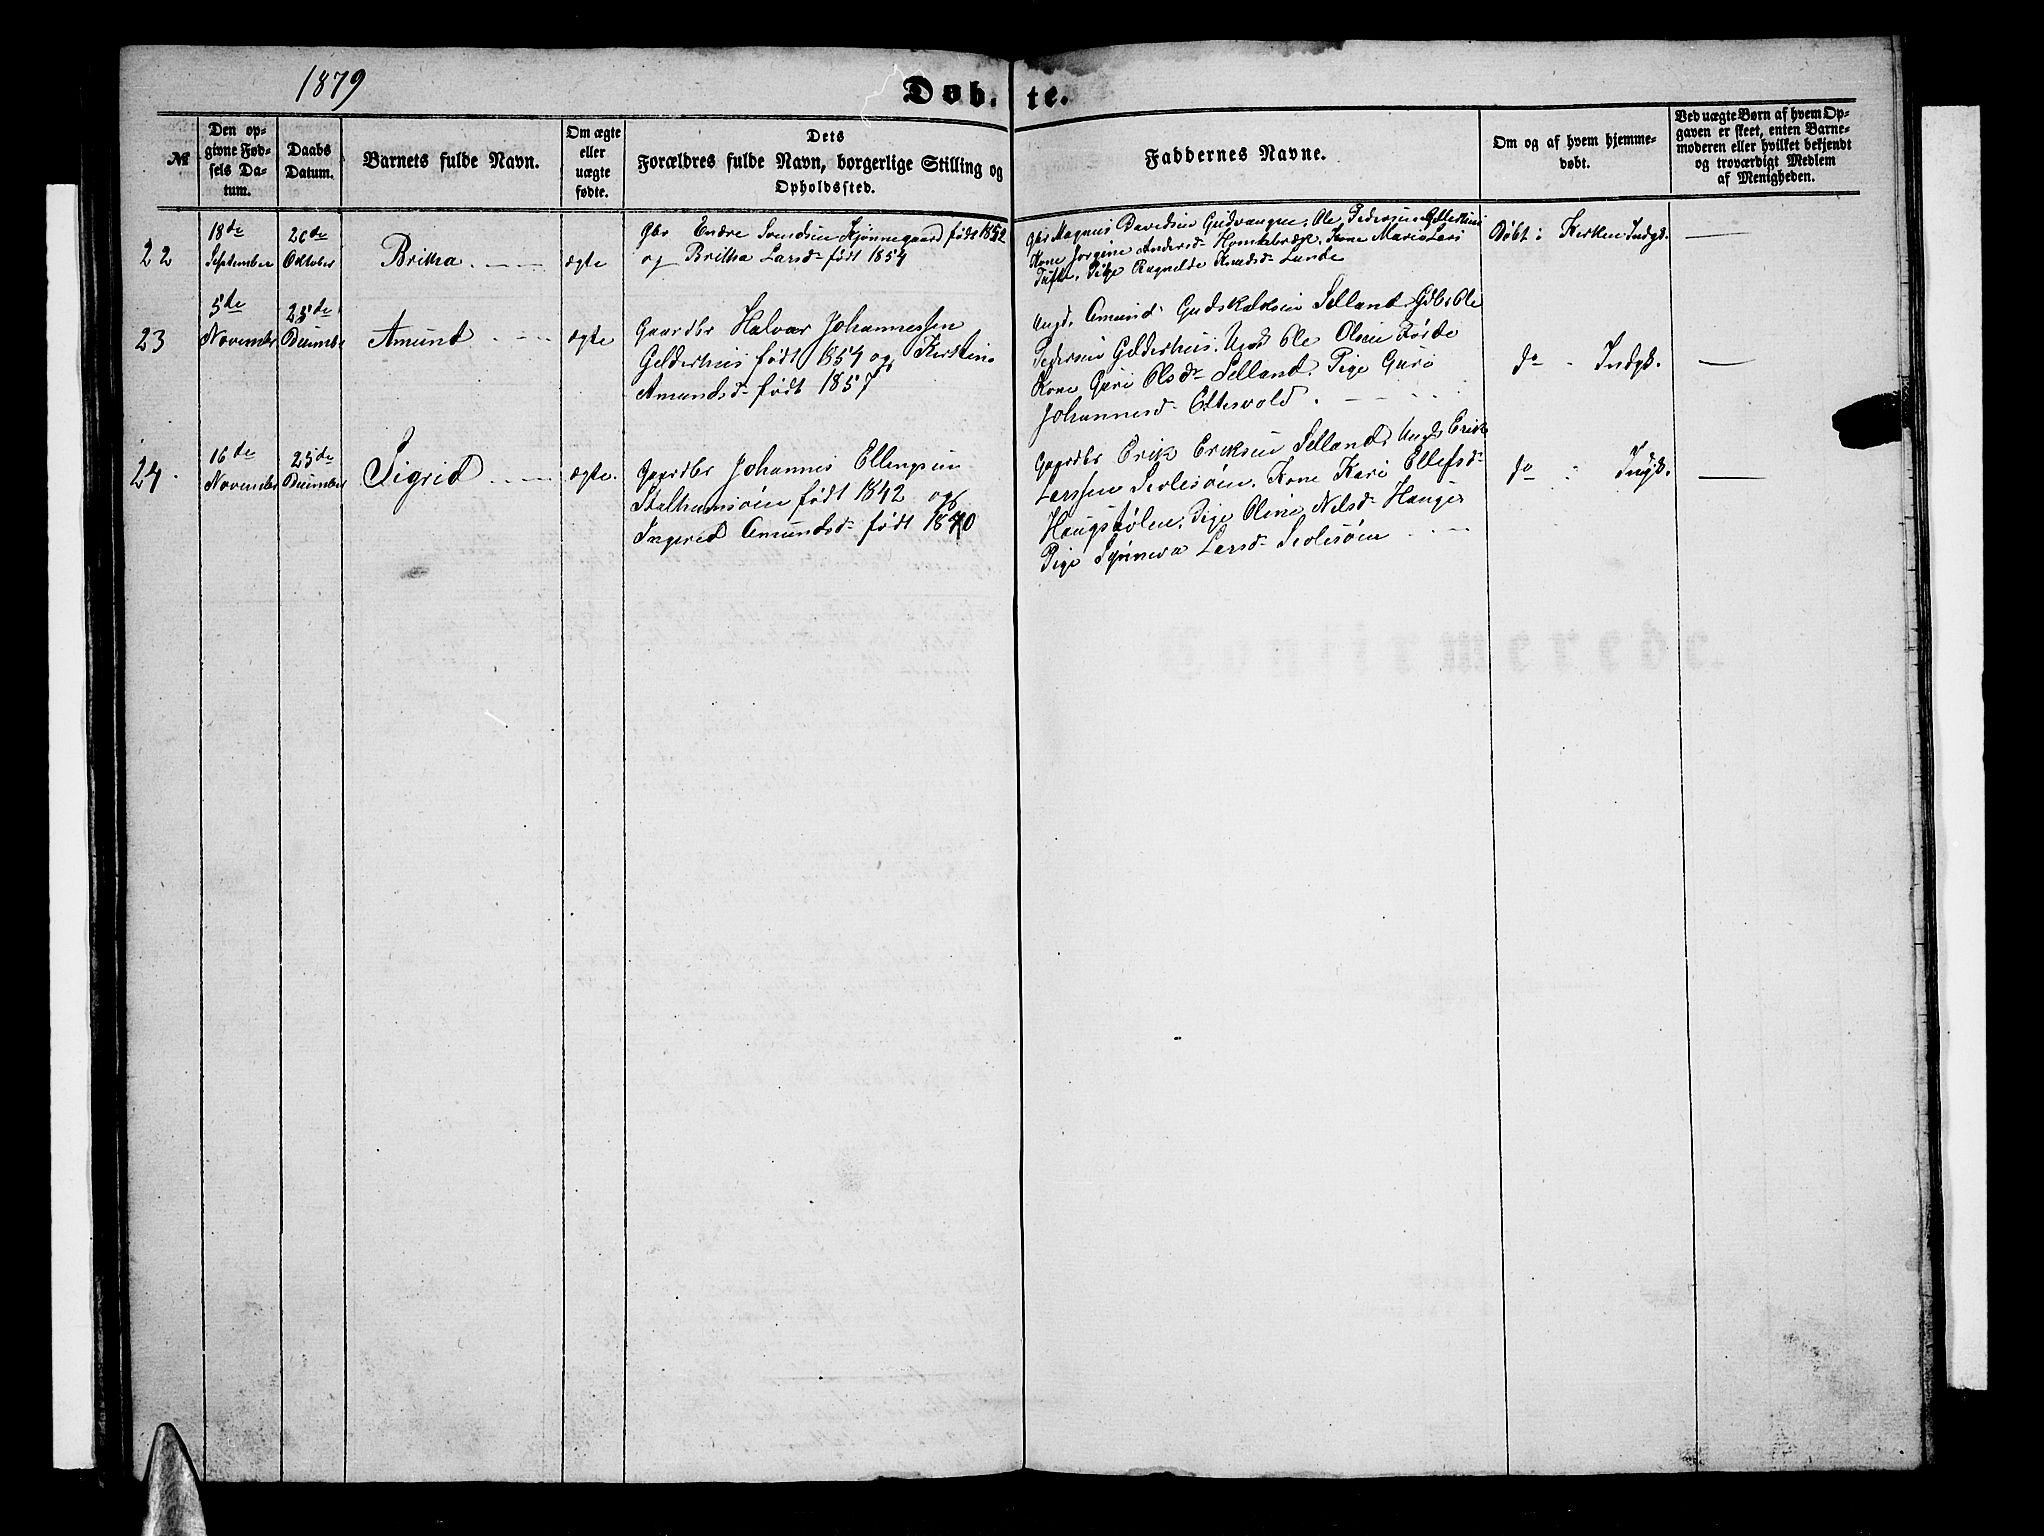 1879
Døb. te.
№
Den op-
givne Fød-
sels Da-
tum.
Daabs
Datum.
Barnets fulde Navn.
Om ægte
eller
uægte
fødte.
Dets
Forældres fulde Navn, borgerlige Stilling og
Opholdssted.
Faddernes Navne.
Om og af hvem hjemme-
døbt.
Ved uægte Børn af hvem Op-
gaven er skeet, enten Barne-
moderen eller hvilket bekjendt
og troværdigt Medlem
af Menigheden.
22
18de
September
26de
Oktober
Britha
ægte
Gbr Endre Svendsen Hjønnegaard født 1852
og Britha Larsd. født 1854
Gbr Magnus Davidsen Gudvangen, Ole Pedersen Gelderhuus
Kone Jorgine Andersd. Kone Maria Lars
Tufte, Pige Ragnilde Knudsd. Lunde
Døbt i Kirken Indgd.
23
5de
November
25de
Decmbr
Amund
ægte
Gaardbr Halvar Johannessen
Gelderhuus født 1854 og Kirstin
Amundsd. født 1857
Ungd. Amund Gudskalksen Selland, Gdb. Ole
Pedersen Gelderhus, Ungd Ole Olsen Førde
Kone Guri Olsd. Selland, Pige Guri
Johannesd.
do - Indgd.
24
16de
November
25de
Decmber
Sigrid
ægte.
Gaardbr Johannis Ellingsen
født 1842 og
Ingerid Amundsd. født 1840
Gaardbr Erik Eriksen Selland, Ungd. Erik
Larssen Kone Kari Ellefsd.
Haugstølen, Pige Oline Nilsd. Haugen
Pige Synneva Larsd.
do - Indgd.
Confirmerede.